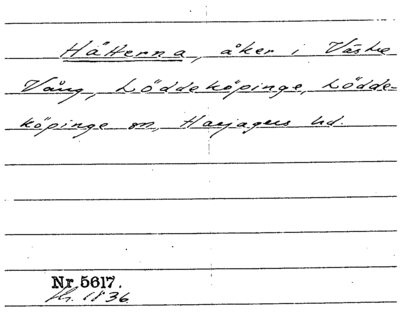 Håtterna, åker i Västre
Vång, Löddeköpinge, Lödde-
köpinge sn, Harjagers hd.
Nr. 5617.
Kr. 1836